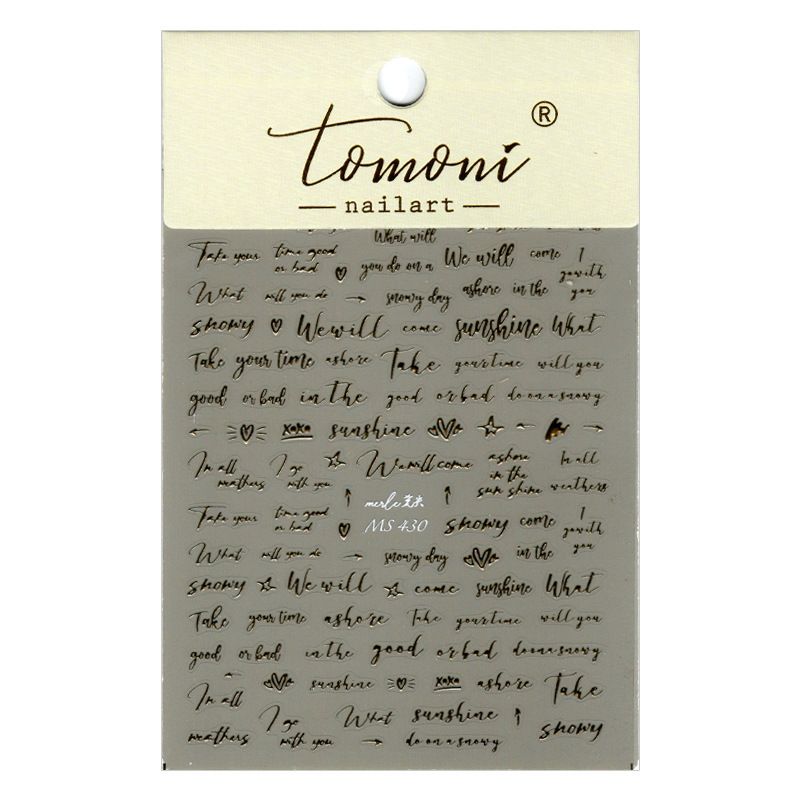 tomoni ®
nailart
What will
Take your time good or bad you do on a We will come I go with you
What will you do → snowy day ashore in the
snowy We will come sunshine What
Take your time ashore Take your time will you
good or bad in the good or bad do on a snowy
← xoxo sunshine ← →
In all weathers I go with you We will come ashore in the sun shine In all weathers
merle美米
MS 430
Take your time good or bad snowy come I go with you
What will you do → snowy day in the
snowy We will come sunshine What
Take your time ashore Take your time will you
good or bad in the good or bad do on a snowy
In all weathers sunshine xoxo ashore Take
I go with you What sunshine ↑ snowy
→ do on a snowy